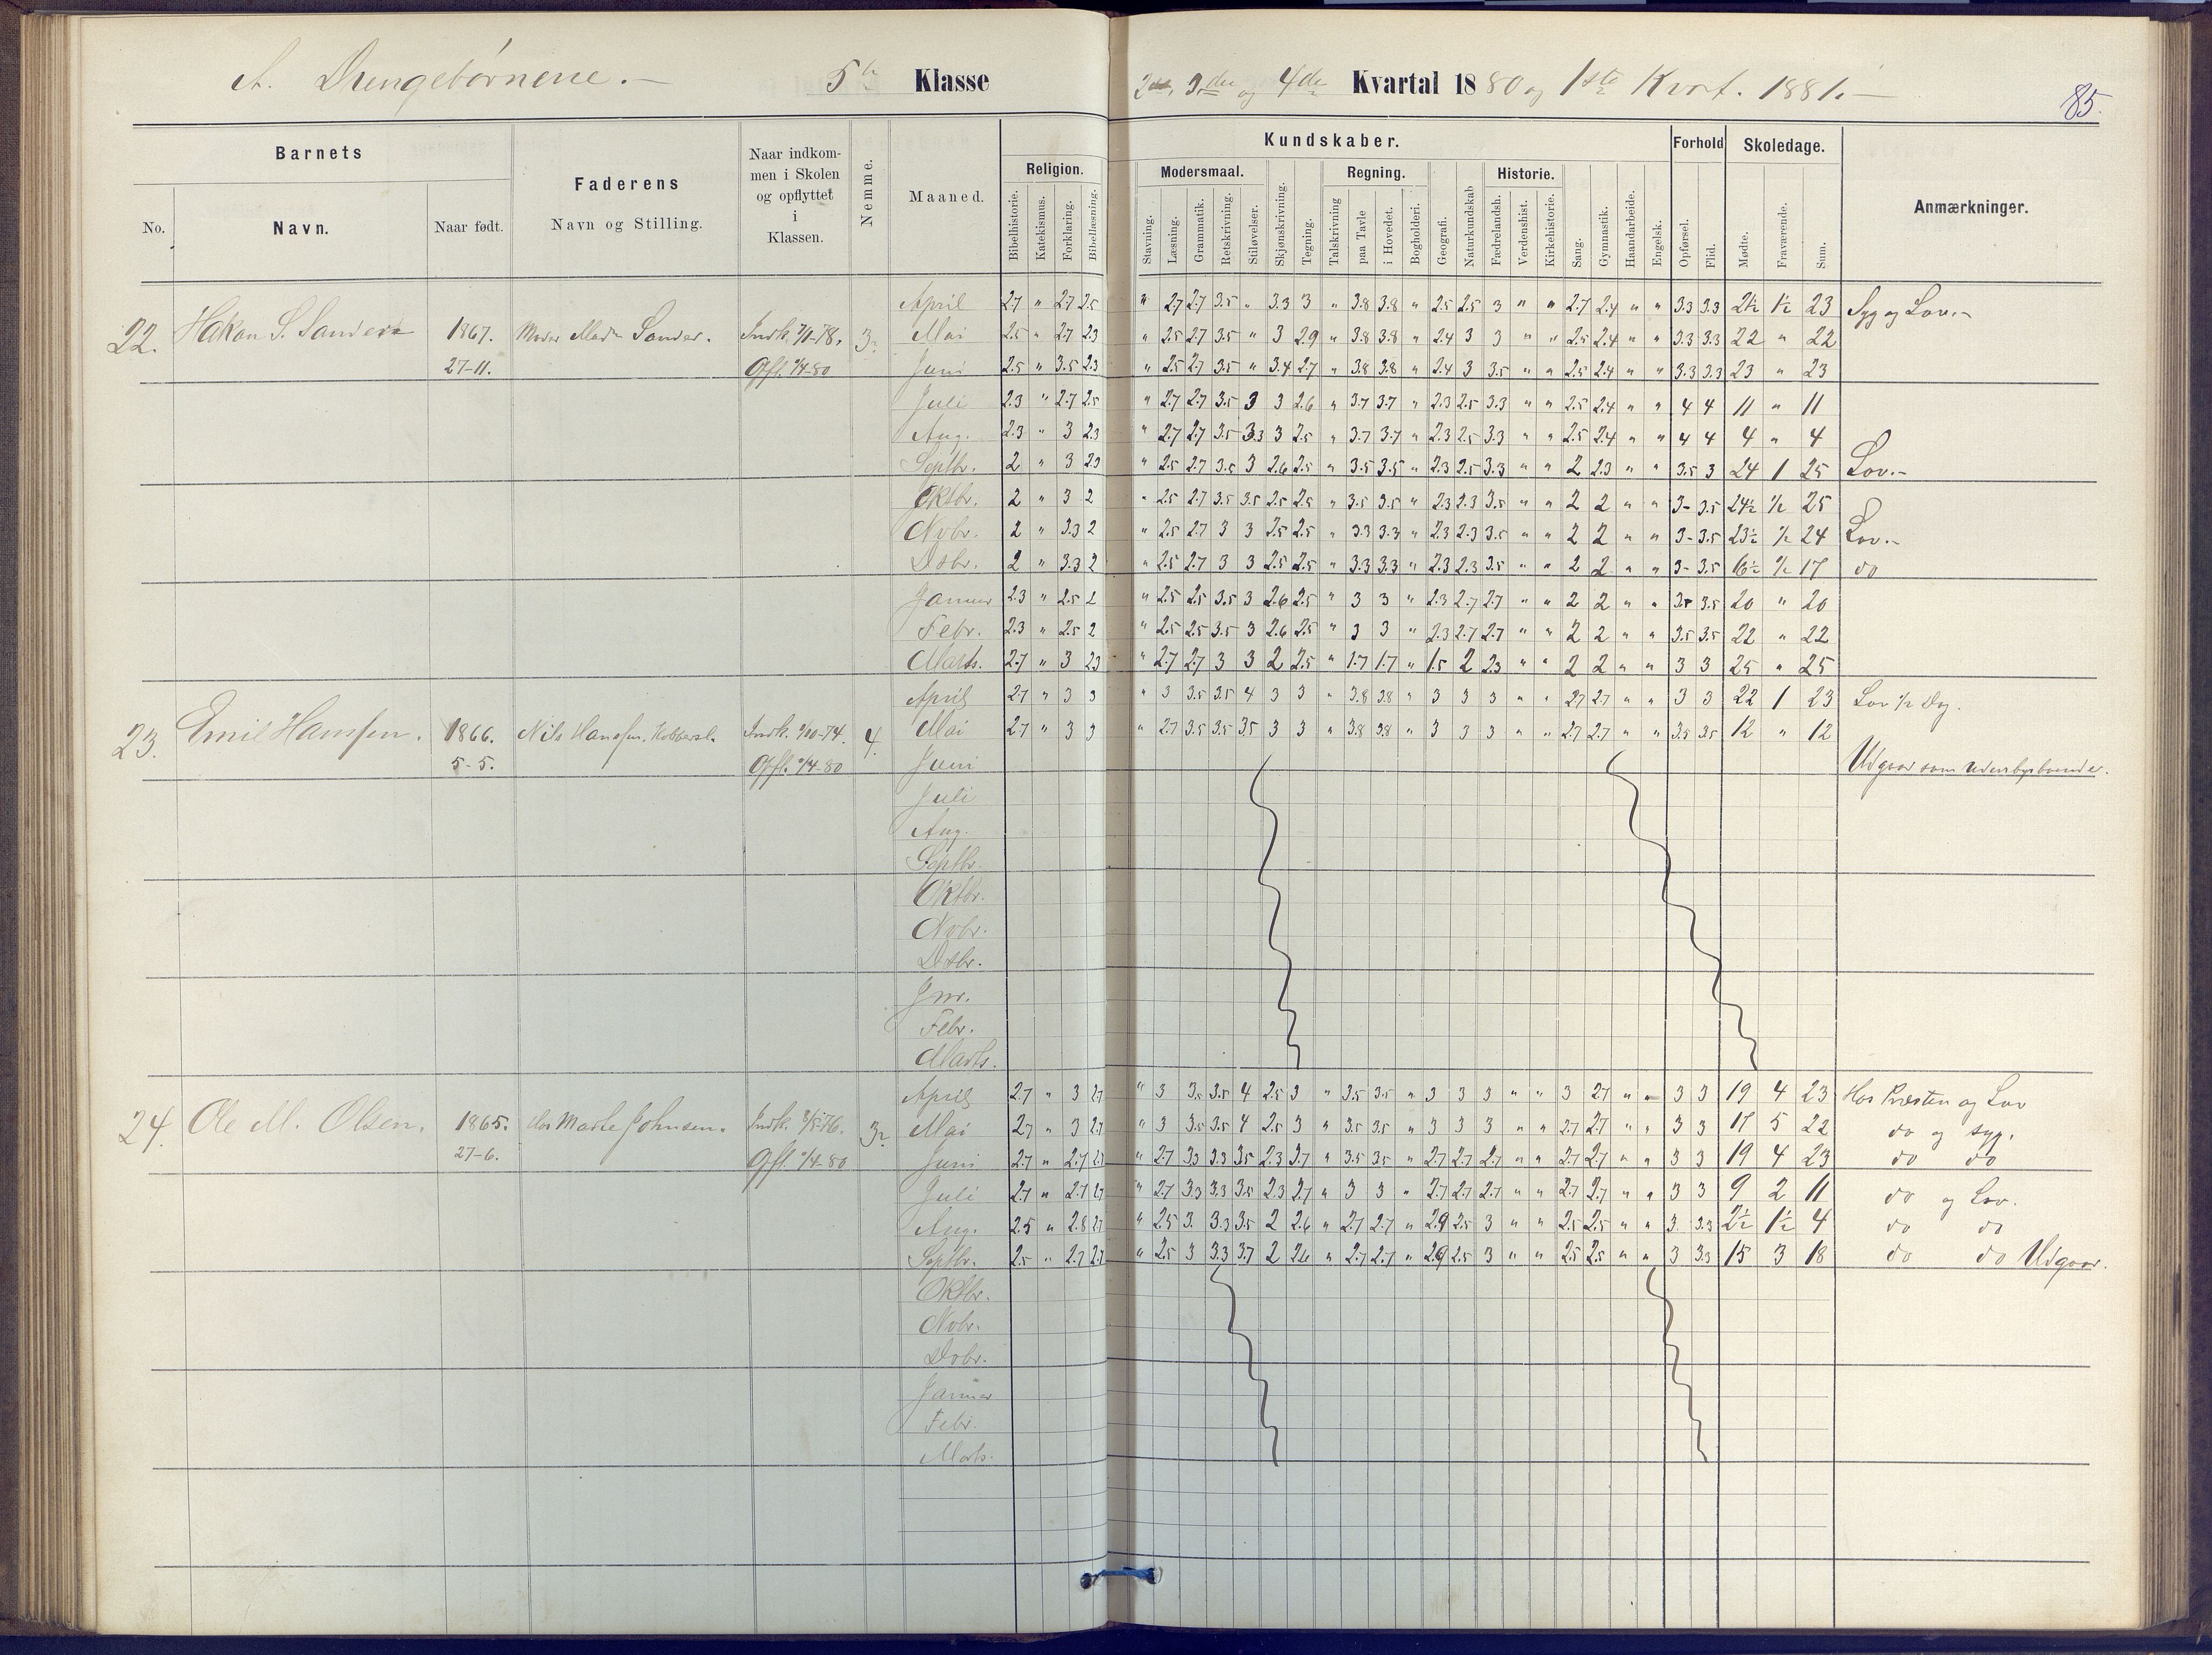 A. Drengebørnene.— 5te Klasse 2det, 3die og 4de Kvartal 1880 og 1ste Kvart. 1881.—
85.
Barnets
No.
Navn.
Naar født.
Faderens
Navn og Stilling.
Naar indkom-
men i Skolen
og opflyttet
i
Klassen.
Nemme.
Maaned.
Kundskaber.
Religion.
Bibelhistorie.
Katekismus.
Forklaring.
Bibellæsning.
Modersmaal.
Stavning.
Læsning.
Grammatik.
Retskrivning.
Stiløvelser.
Skjønskrivning.
Tegning.
Regning.
Talskrivning
paa Tavle
i Hovedet.
Bogholderi.
Geografi.
Naturkundskab
Historie.
Fædrelandsh.
Verdenshist.
Kirkehistorie.
Sang.
Gymnastik.
Haandarbeide.
Engelsk.
Forhold
Opførsel.
Flid.
Skoledage.
Mødte.
Fraværende.
Sum.
Anmærkninger.
April 2.7 " 2.7 2.5 " 2.7 2.7 3.5 " 3.3 3 " 3.8 3.8 " 2.5 2.5 3 " " 2.7 2.4 " " 3.3 3.3 21½ 1½ 23 Syg og Lov.—
22. Hakon S. Sanders 1867. Moder Mad. Sander. 3. Mai 2.5 " 2.7 2.3 " 2.5 2.7 3.5 " 3 2.9 " 3.8 3.8 " 2.4 3 3 " " 2.5 2.4 " " 3.3 3.3 22 " 22
27-11. Juni 2.5 " 3.5 2.3 " 2.5 2.7 3.5 " 3.4 2.7 " 3.8 3.8 " 2.4 3 3.5 " " 2.5 2.4 " " 3.3 3.3 23 " 23
Juli 2.3 " 2.7 2.5 " 2.7 2.7 3.5 3 3 2.6 " 3.7 3.7 " 2.3 2.5 3.3 " " 2.5 2.4 " " 4 4 11 " 11
Aug. 2.3 " 3 2.3 " 2.7 2.7 3.5 3.3 3 2.5 " 3.7 3.7 " 2.3 2.5 3.3 " " 2.5 2.4 " " 4 4 4 " 4
Septbr. 2 " 3 2.3 " 2.5 2.7 3.5 3 2.6 2.5 " 3.5 3.5 " 2.3 2.5 3.3 " " 2 2.3 " " 3.5 3 24 1 25 Lov.—
Oktbr. 2 " 3 2 " 2.5 2.7 3.5 3.5 2.5 2.5 " 3.5 3.5 " 2.3 2.3 3.5 " " 2 2 " " 3- 3.5 24½ ½ 25
Novbr. 2 " 3.3 2 " 2.5 2.7 3 3 2.5 2.5 " 3.3 3.3 " 2.3 2.3 3.5 " " 2 2 " " 3- 3.5 23½ ½ 24 Lov.—
Dsbr. 2 " 3.3 2 " 2.5 2.7 3 3 2.5 2.5 " 3.3 3.3 " 2.3 2.3 3.5 " " 2 2 " " 3- 3.5 16½ ½ 17 do
Januar 2.3 " 2.5 2 " 2.5 2.5 3.5 3 2.6 2.5 " 3 3 " 2.3 2.7 2.7 " " 2 2 " " 3.5 3.5 20 " 20
Febr. 2.3 " 2.5 2 " 2.5 2.5 3.5 3 2.6 2.5 " 3 3 " 2.3 2.7 2.7 " " 2 2 " " 3.5 3.5 22 " 22
Marts. 2.7 " 3 2.3 " 2.7 2.7 3 3 2 2.5 " 1.7 1.7 " 1.5 2 2.3 " " 2 2 " " 3 3 25 " 25
April 2.7 " 3 3 " 3 3.5 3.5 4 3 3 " 3.8 3.8 " 3 3 3 " " 2.7 2.7 " " 3 3 22 1 23 Lov ½ Dag.
23. Emil Hansen. 1866. Nils Hansen, 4. Mai 2.7 " 3 3 " 2.7 3.5 3.5 3.5 3 3 " 3.8 3.8 " 3 3 3 " " 2.7 2.7 " " 3.5 3.5 12 " 12
5-5. Juni Udgaar som udenbysboende.
Juli
Aug.
Septbr.
Oktbr.
Novbr.
Dsbr.
Jnr.
Febr.
Marts.
April 2.7 " 3 2.7 " 3 3.5 3.5 4 2.5 3 " 3.5 3.5 " 3 3 3 " " 3 2.7 " " 3 3 19 4 23 Hos Præsten og Lov
24. Ole M. Olsen. 1865. Hos Marte Johnsen. 3. Mai 2.7 " 3 2.7 " 3 3.5 3.5 4 2.5 3 " 3.5 3.5 " 3 3 3 " " 2.7 2.7 " " 3 3 17 5 22 do og syg.
27-6. Juni 2.7 " 2.7 2.7 " 2.7 3.3 3.3 3.5 2.3 2.7 " 3.5 3.5 " 2.7 2.7 2.7 " " 2.7 2.7 " " 3 3 19 4 23 do do
Juli 2.7 " 2.7 2.7 " 2.7 3.3 3.3 3.5 2.3 2.7 " 3 3 " 2.7 2.7 2.7 " " 2.7 2.7 " " 3 3 9 2 11 do og Lov.
Aug. 2.5 " 2.8 2.7 " 2.5 3. 3.3 3.5 2 2.6 " 2.7 2.7 " 2.9 2.5 3 " " 2.5 2.5 " " 3. 3.3 2½ 1½ 4 do do
Septbr. 2.5 " 2.7 2.7 " 2.5 3 3.3 3.7 2 2.6 " 2.7 2.7 " 2.9 2.5 3 " " 2.5 2.5 " " 3 3.3 15 3 18 do do Udgaar.
Oktbr.
Novbr.
Dsbr.
Januar
Febr.
Marts.